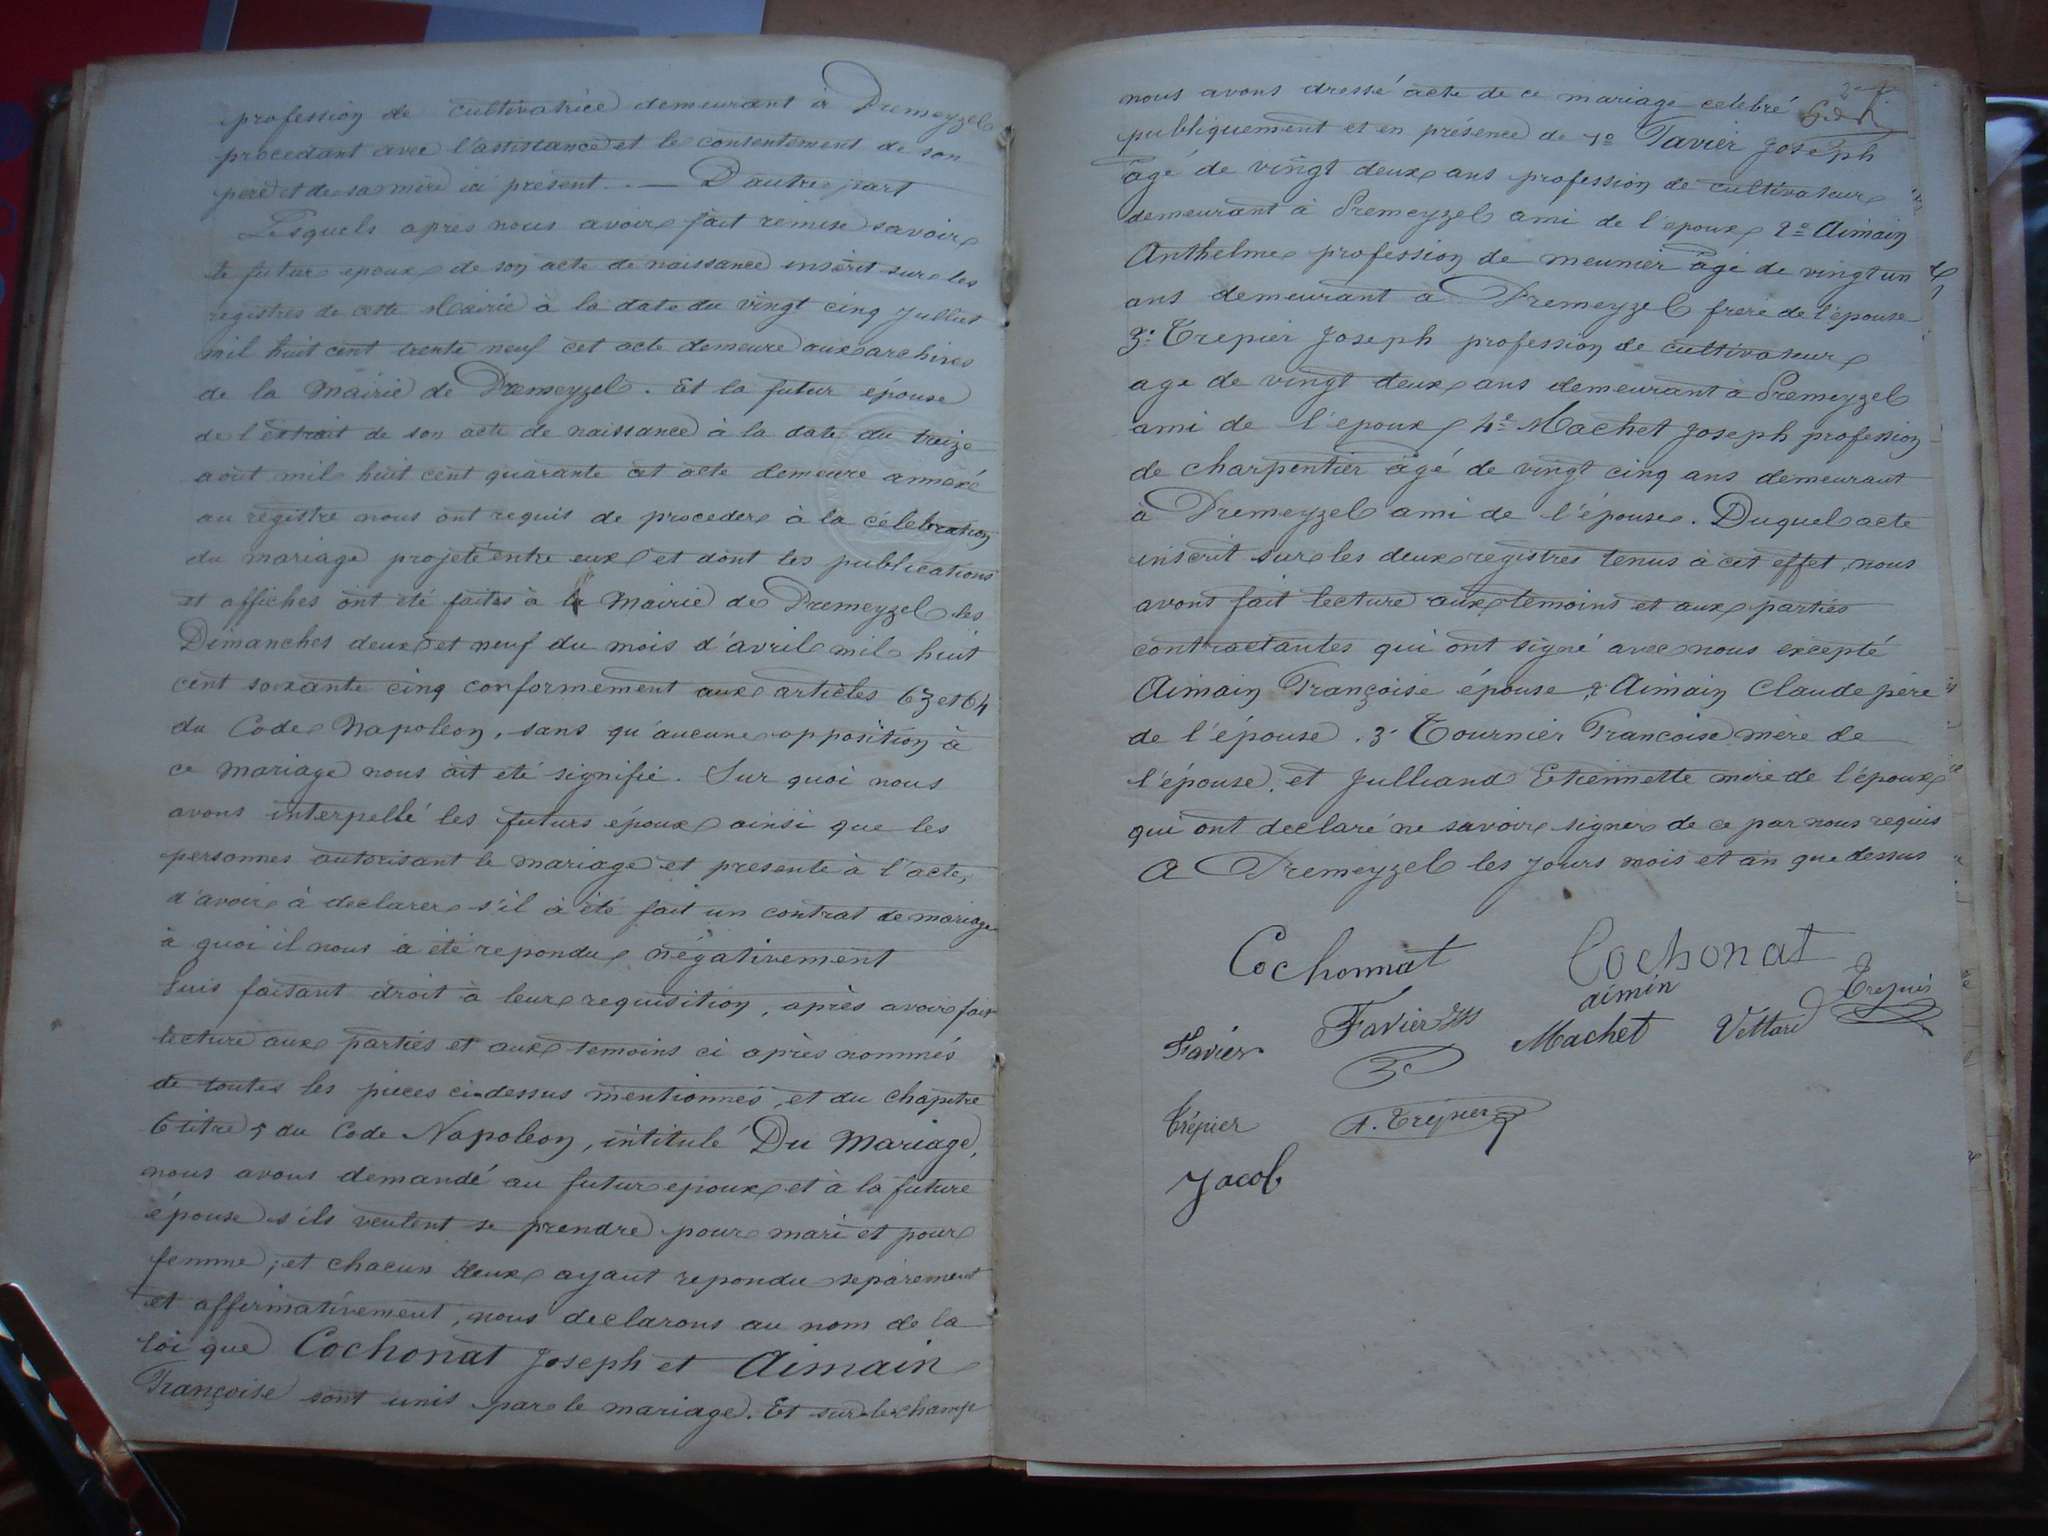 profession de cultivatrice demeurant à Premeyzel
procedant avec l'assistance et le consentement de son
père et de sa mère ici présent. — D'autre part
Lesquels après nous avoir fait remise savoir
le futur epoux de son acte de naissance inscrit sur les
registres de cette Mairie à la date du vingt cinq Julliet
mil huit cent trente neuf cet acte demeure aux archives
de la Mairie de Premeyzel. Et la futur épouse
de l'extrait de son acte de naissance à la date du treize
aout mil huit cent quarante cet acte demeure annexé
au registre nous ont requis de proceder à la célébration
du mariage projeté entre eux et dont les publications
et affiches ont été faites à la Mairie de Premeyzel les
Dimanches deux et neuf du mois d'avril mil huit
cent soixante cinq conformement aux articles 63 et 64
du Code Napoleon, sans qu'aucune opposition à
ce mariage nous ait eté signifié. Sur quoi nous
avons interpellé les futurs époux ainsi que les
personnes autorisant le mariage et presente à l'acte,
d'avoir à declarer s'il à été fait un contrat de mariage
à quoi il nous à été repondu négativement
Puis faisant droit à leur requisition, après avoir fait
lecture aux parties et aux temoins ci après nommés
de toutes les pièces ci-dessus mentionnés, et du chapitre
6 titre 5 du Code Napoleon, intitulé Du Mariage,
nous avons demandé au futur epoux et à la future
épouse s'ils veulent se prendre pour mari et pour
femme; et chacun deux ayant repondu séparement
et affirmativement, nous declarons au nom de la
loi que Cochonat Joseph et Aimain
Françoise sont unis par le mariage. Et sur le champ
nous avons dressé acte de ce mariage celebré
publiquement et en présence de 1º Favier Joseph
âgé de vingt deux ans profession de cultivateur
demeurant à Premeyzel ami de l'epoux 2º Aimain
Anthelme profession de meunier âgé de vingt un
ans demeurant à Premeyzel frere de l'épouse
3º Trepier Joseph profession de cultivateur
age de vingt deux ans demeurant à Premeyzel
ami de l'epoux 4º Machet Joseph profession
de charpentier âgé de vingt cinq ans demeurant
à Premeyzel ami de l'épouse. Duquel acte
inscrit sur les deux registres tenus à cet effet, nous
avons fait lecture aux temoins et aux parties
contractantes qui ont signé avec nous excepté
Aimain Françoise épouse, 2º Aimain Claude père
de l'épouse. 3º Tournier Francoise mère de
l'épouse, et Julliand Etiennette mère de l'époux
qui ont declaré ne savoir signer de ce par nous requis
A Premeyzel les jours mois et an que dessus
Cochonnat Cochonat
aimin Trepier
Favier Favier Machet Vettard
Trépier A. Trepier
Jacob